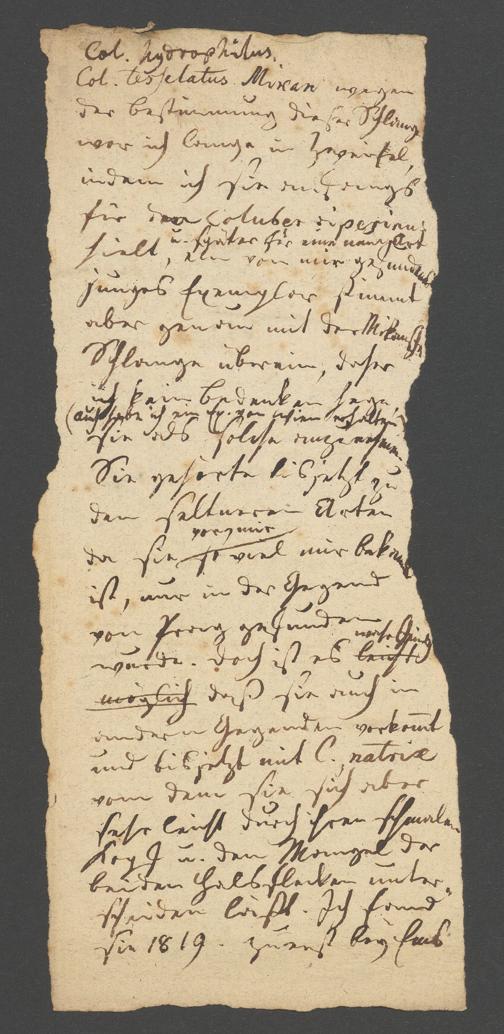 Col. hydrophilus.
Col. tesselatus Mikan wegen
der bestimmung dieser Schlange
war ich lange in Zweifel,
indem ich sie anfangs
für den Coluber
u. später für eine
hielt, ein von mir gefundenes
junges Exemplar stimmt
aber genau mit der Mikanschen
Schlange überein, daher
ich kein bedenken trage
(auch habe ich ein Ex. von Wien erhalten)
sie als solche anzunehmen.
Sie gehörte bisjetzt zu
den seltneren Arten
da sie so viel mir bekannt
ist, nur in der Gegend
von Prag gefunden
wurde. Doch ist es leicht
wahrscheinlich
möglich daß sie auch in
andern Gegenden vorkommt
und bisjetzt mit C. natrix
von dem sie sich aber
sehr leicht durch ihren schmalen
Kopf u. den Mangel der
beiden Halsflecken unter-
scheiden läßt. Ich fand
sie 1819. zuerst bey Ems